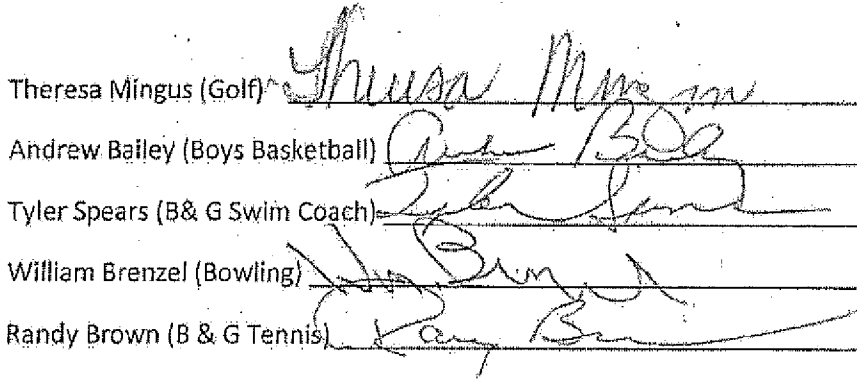 Theresa Mingus (Golf) Theresa Mingus
Andrew Bailey (Boys Basketball)
Tyler Spears (B& G Swim Coach) Tyler Spears
William Brenzel (Bowling)
Randy Brown (B & G Tennis)